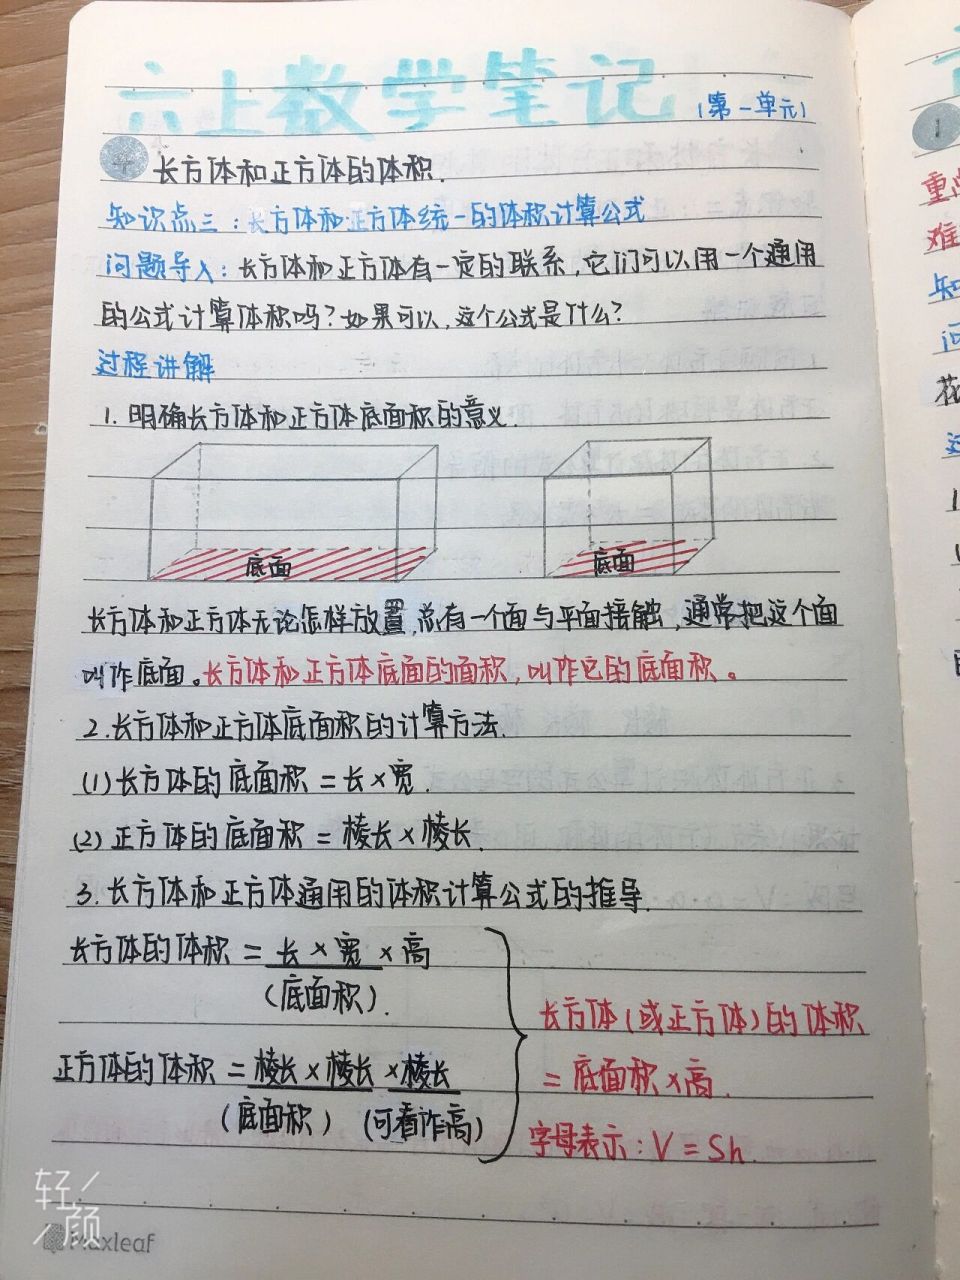 六上数学笔记
(第一单元)
长方体和正方体的体积.
知识点三:长方体和正方体统一的体积计算公式
问题导入:长方体和正方体有一定的联系,它们可以用一个通用
的公式计算体积吗?如果可以,这个公式是什么?
过程讲解
1.明确长方体和正方体底面积的意义.
底面 底面
长方体和正方体无论怎样放置,总有一个面与平面接触,通常把这个面
叫作底面。长方体和正方体底面的面积,叫作它的底面积。
2.长方体和正方体底面积的计算方法.
(1)长方体的底面积=长×宽.
(2)正方体的底面积=棱长×棱长.
3.长方体和正方体通用的体积计算公式的推导.
长方体的体积=长×宽×高
(底面积).
正方体的体积=棱长×棱长×棱长
(底面积) (可看作高)
长方体(或正方体)的体积
=底面积×高.
字母表示:V=Sh.
轻颜
Maxleaf
1
重点
难
知
问
花
过
1